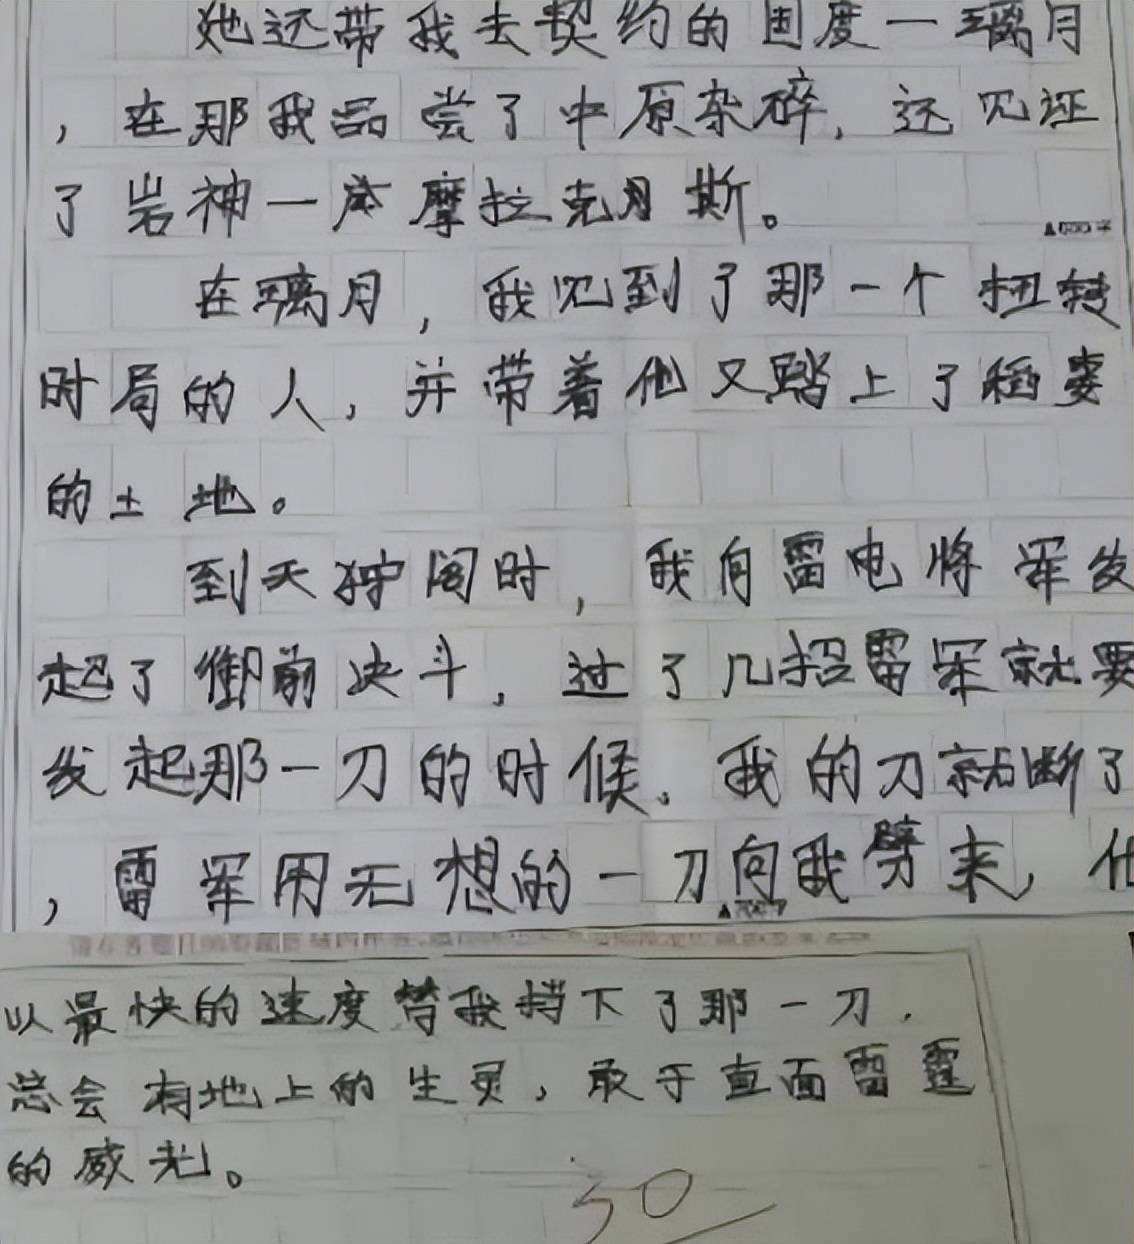 她还带我去契约的国度一璃月
，在那我品尝了中原杂碎，还见证
了岩神一摩拉克斯。
▲600字
在璃月，我见到了那一个扭转
时局的人，并带着他又踏上了稻妻
的土地。
到天守阁时，我向雷电将军发
起了御前决斗，过了几招雷军就要
发起那一刀的时候。我的刀就断了
，雷军用无想的一刀向我劈来，他
▲700字
以最快的速度替我挡下了那一刀.
总会有地上的生灵，敢于直面雷霆
的威光。
30